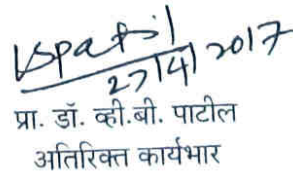 vspatil
27/4/2017
प्रा. डॉ. व्ही.बी. पाटील
अतिरिक्त कार्यभार